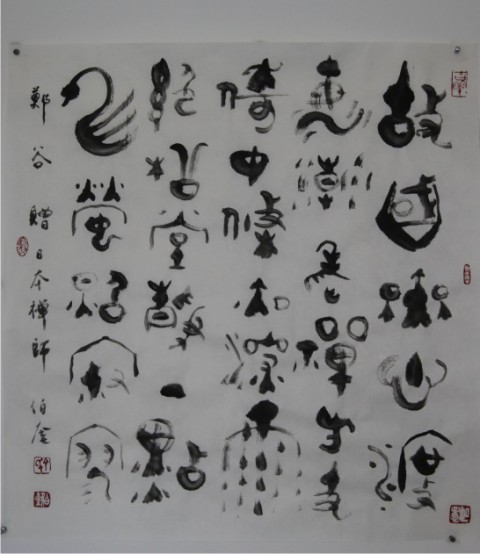 故國無心渡
海潮老禪方丈
倚中條夜深雨
絕松堂靜一點
飛螢照寂寥
鄭谷 贈日本禪師 伯